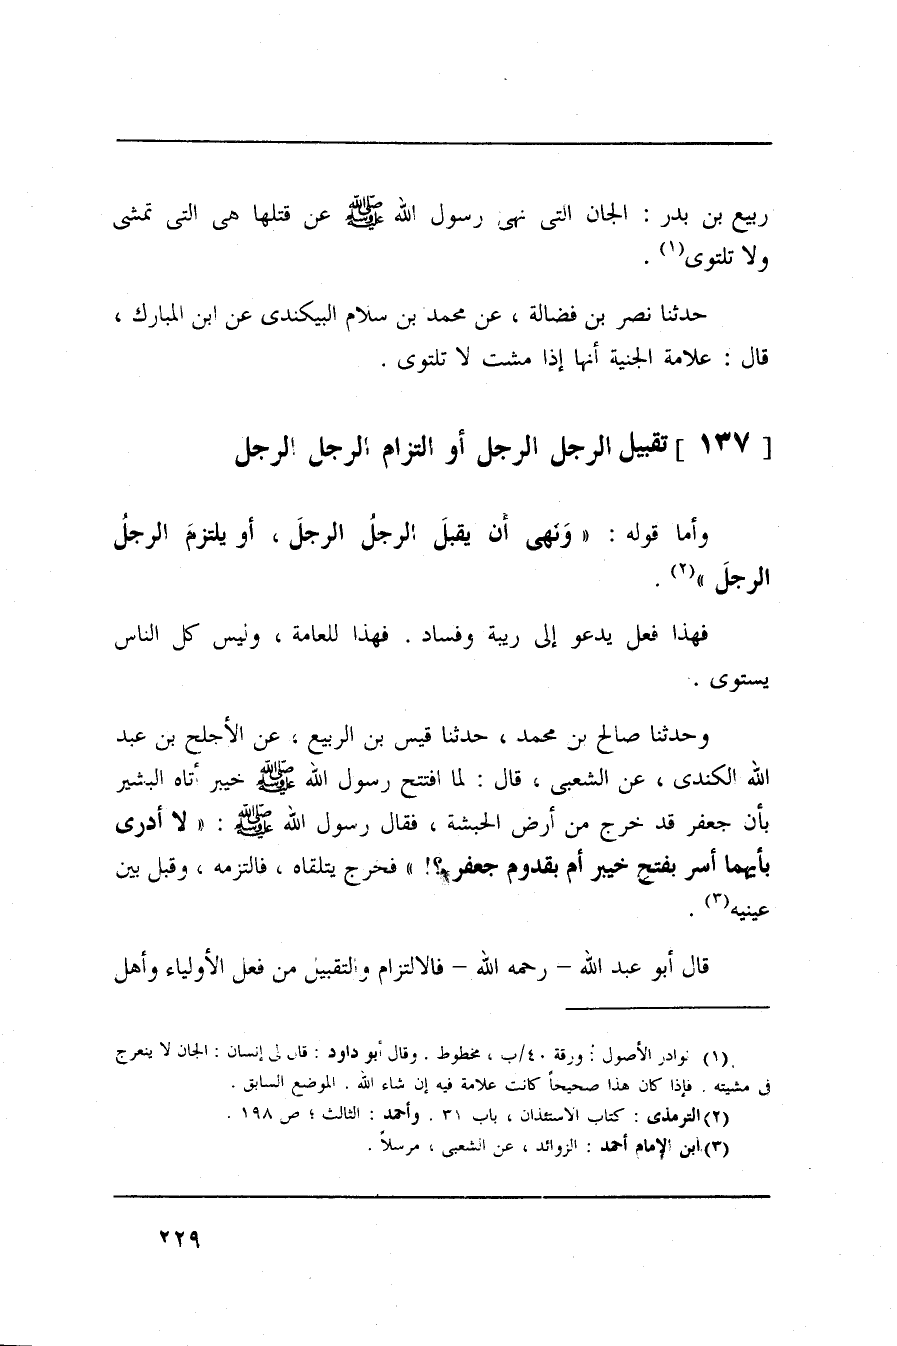 ربيع بن بدر : الجان التى نهى رسول الله ﷺ عن قتلها هى التى تمشى
ولا تلتوى(١) .
حدثنا نصر بن فضالة ، عن محمد بن سلام البيكندى عن ابن المبارك ،
قال : علامة الجنية أنها إذا مشت لا تلتوى .
[ ١٣٧ ] تقبيل الرجل الرجل أو التزام الرجل الرجل
وأما قوله : « وَنَهى أن يقبلَ الرجلُ الرجلَ ، أو يلتزمَ الرجلُ
الرجلَ »(٢) .
فهذا فعل يدعو إلى ريبة وفساد . فهذا للعامة ، وليس كل الناس
يستوى .
وحدثنا صالح بن محمد ، حدثنا قيس بن الربيع ، عن الأجلح بن عبد
الله الكندى ، عن الشعبى ، قال : لما افتتح رسول الله ﷺ خيبر أتاه البشير
بأن جعفر قد خرج من أرض الحبشة ، فقال رسول الله ﷺ : « لا أدرى
بأيهما أسر بفتح خيبر أم بقدوم جعفر ؟! » فخرج يتلقاه ، فالتزمه ، وقبل بين
عينيه(٣) .
قال أبو عبد الله – رحمه الله – فالالتزام والتقبيل من فعل الأولياء وأهل
(١) نوادر الأصول : ورقة ٤٠/ب ، مخطوط . وقال أبو داود : قال لى إنسان : الجان لا ينعرج
فى مشيته . فإذا كان هذا صحيحاً كانت علامة فيه إن شاء الله . الموضع السابق .
(٢) الترمذى : كتاب الاستئذان ، باب ٣١ . وأحمد : الثالث ؛ ص ١٩٨ .
(٣) ابن الإمام أحمد : الزوائد ، عن الشعبى ، مرسلاً .
٢٢٩